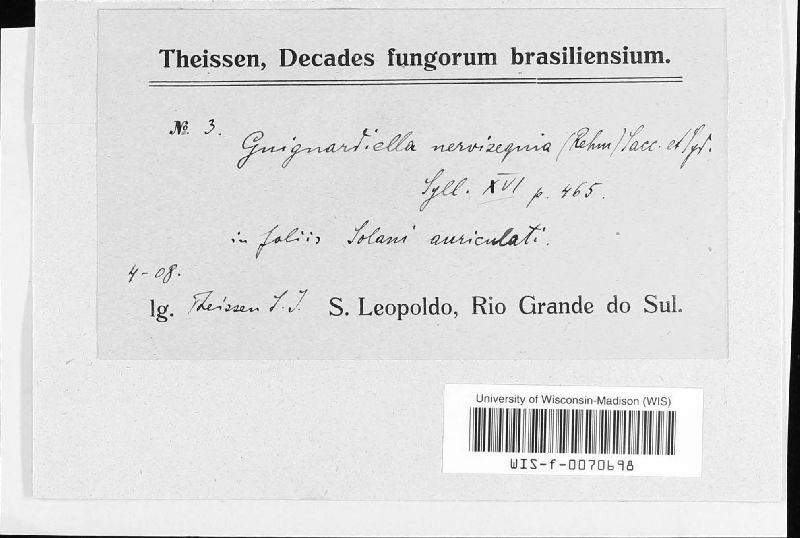 Theissen, Decades fungorum brasiliensium.
№ 3.
Guignardiella nervisequia (Rehm) Sacc. et Syd.
Syll. XVI p. 465.
in foliis Solani auriculati.
4-08.
lg. Theissen S. J. S. Leopoldo, Rio Grande do Sul.
University of Wisconsin-Madison (WIS)
WIS-f-0070698